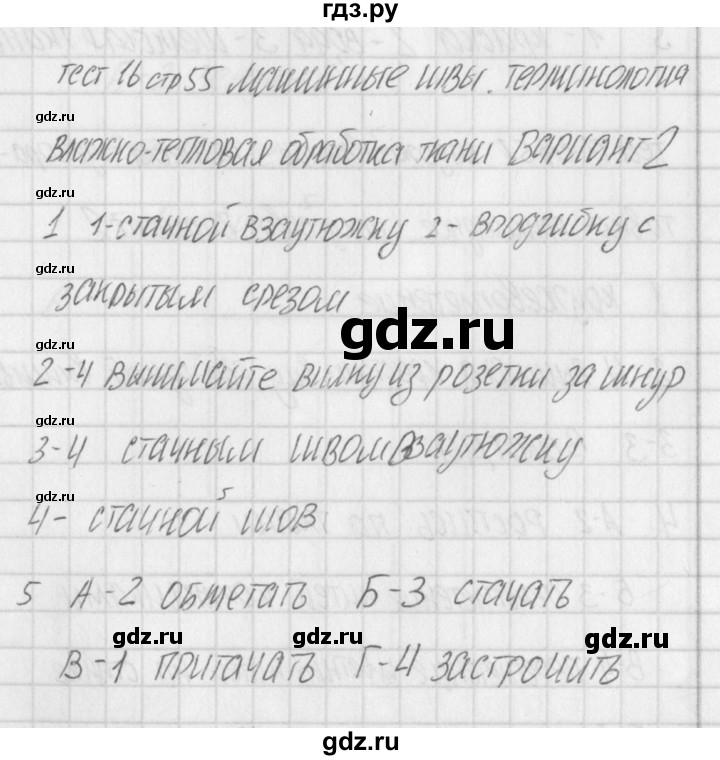 гдз.ру
тест 16 стр 55 машинные швы. терминология
gdz.ru
влажно-тепловая обработка ткани Вариант 2
gdz.ru
1 1-стачной взаутюжку 2- вподгибку с
gdz.ru
закрытым срезом
gdz.ru
gdz.ru
2-4 вынимайте вилку из розетки за шнур
gdz.ru
3-4 стачным швом взаутюжку
gdz.ru
4- стачной шов
5
5 А-2 обметать Б-3 стачать
gdz.ru gdz.ru gdz.ru
В-1 притачать Г-4 застрочить
gdz.ru